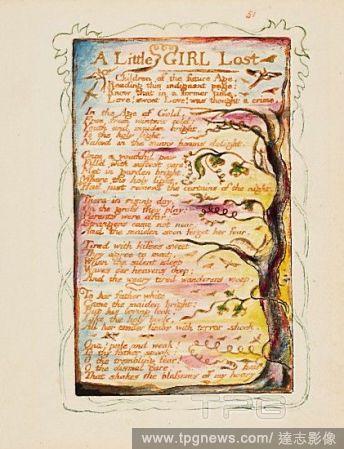 51
A Little GIRL Lost
Children of the future Age,
Reading this indignant page;
Know that in a former time,
Love! sweet Love! was thought a crime.
In the Age of Gold,
Free from winters cold:
Youth and maiden bright,
To the holy light,
Naked in the sunny beams delight.
Once a youthful pair
Fill'd with softest care:
Met in garden bright,
Where the holy light,
Had just removd the curtains of the night.
There in rising day,
On the grass they play:
Parents were afar:
Strangers came not near:
And the maiden soon forgot her fear.
Tired with kisses sweet
They agree to meet,
When the silent sleep
Waves o'er heavens deep;
And the weary tired wanderers weep.
To her father white
Came the maiden bright:
But his loving look,
Like the holy book,
All her tender limbs with terror shook.
Ona! pale and weak!
To thy father speak:
O the trembling fear!
O the dismal care!
That shakes the blossoms of my hoary
hair
TPG
www.tpgnews.com / 達志影像